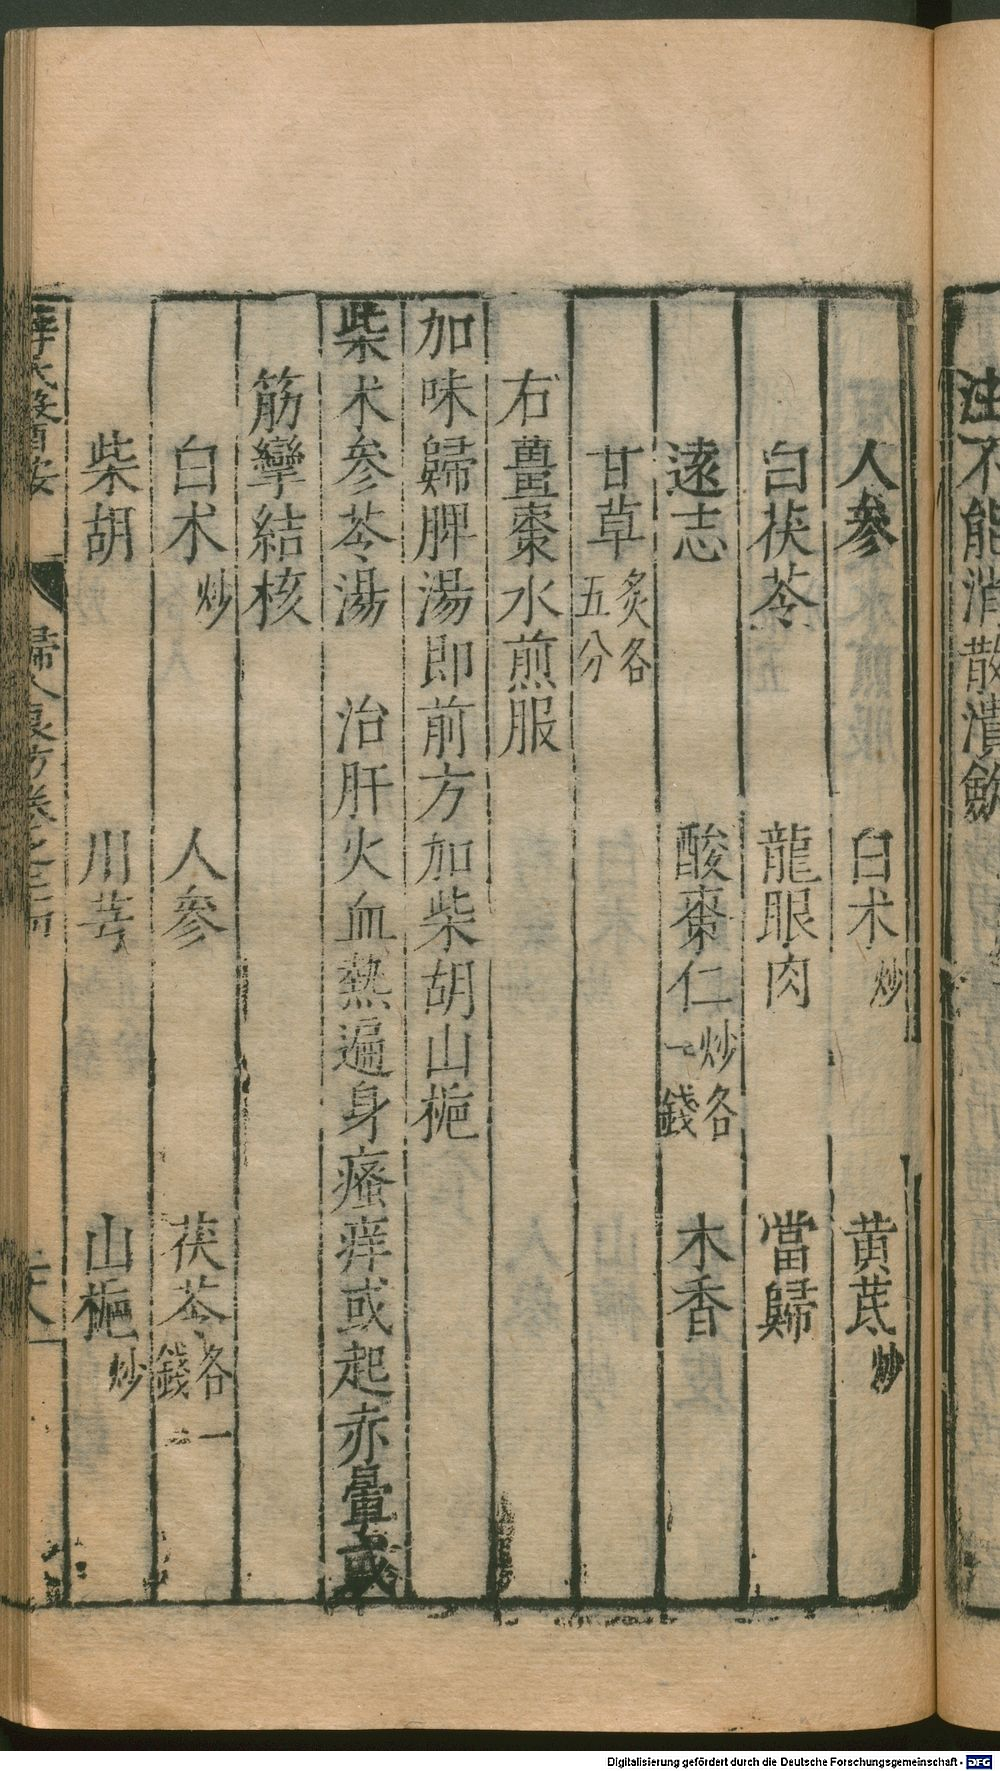 注不能消散潰斂
人參　白术炒　黄芪炒
白茯苓　龍眼肉　當歸
遠志　酸棗仁炒各一錢　木香
甘草炙各五分
右薑棗水煎服
加味歸脾湯即前方加柴胡山梔
柴术參苓湯　治肝火血熱遍身瘙痒或起赤暈或
筋攣結核
白术炒　人參　茯苓各一錢
柴胡　川芎　山梔炒
薛氏醫按　婦人良方卷之二十四
Digitalisierung gefördert durch die Deutsche Forschungsgemeinschaft - DFG